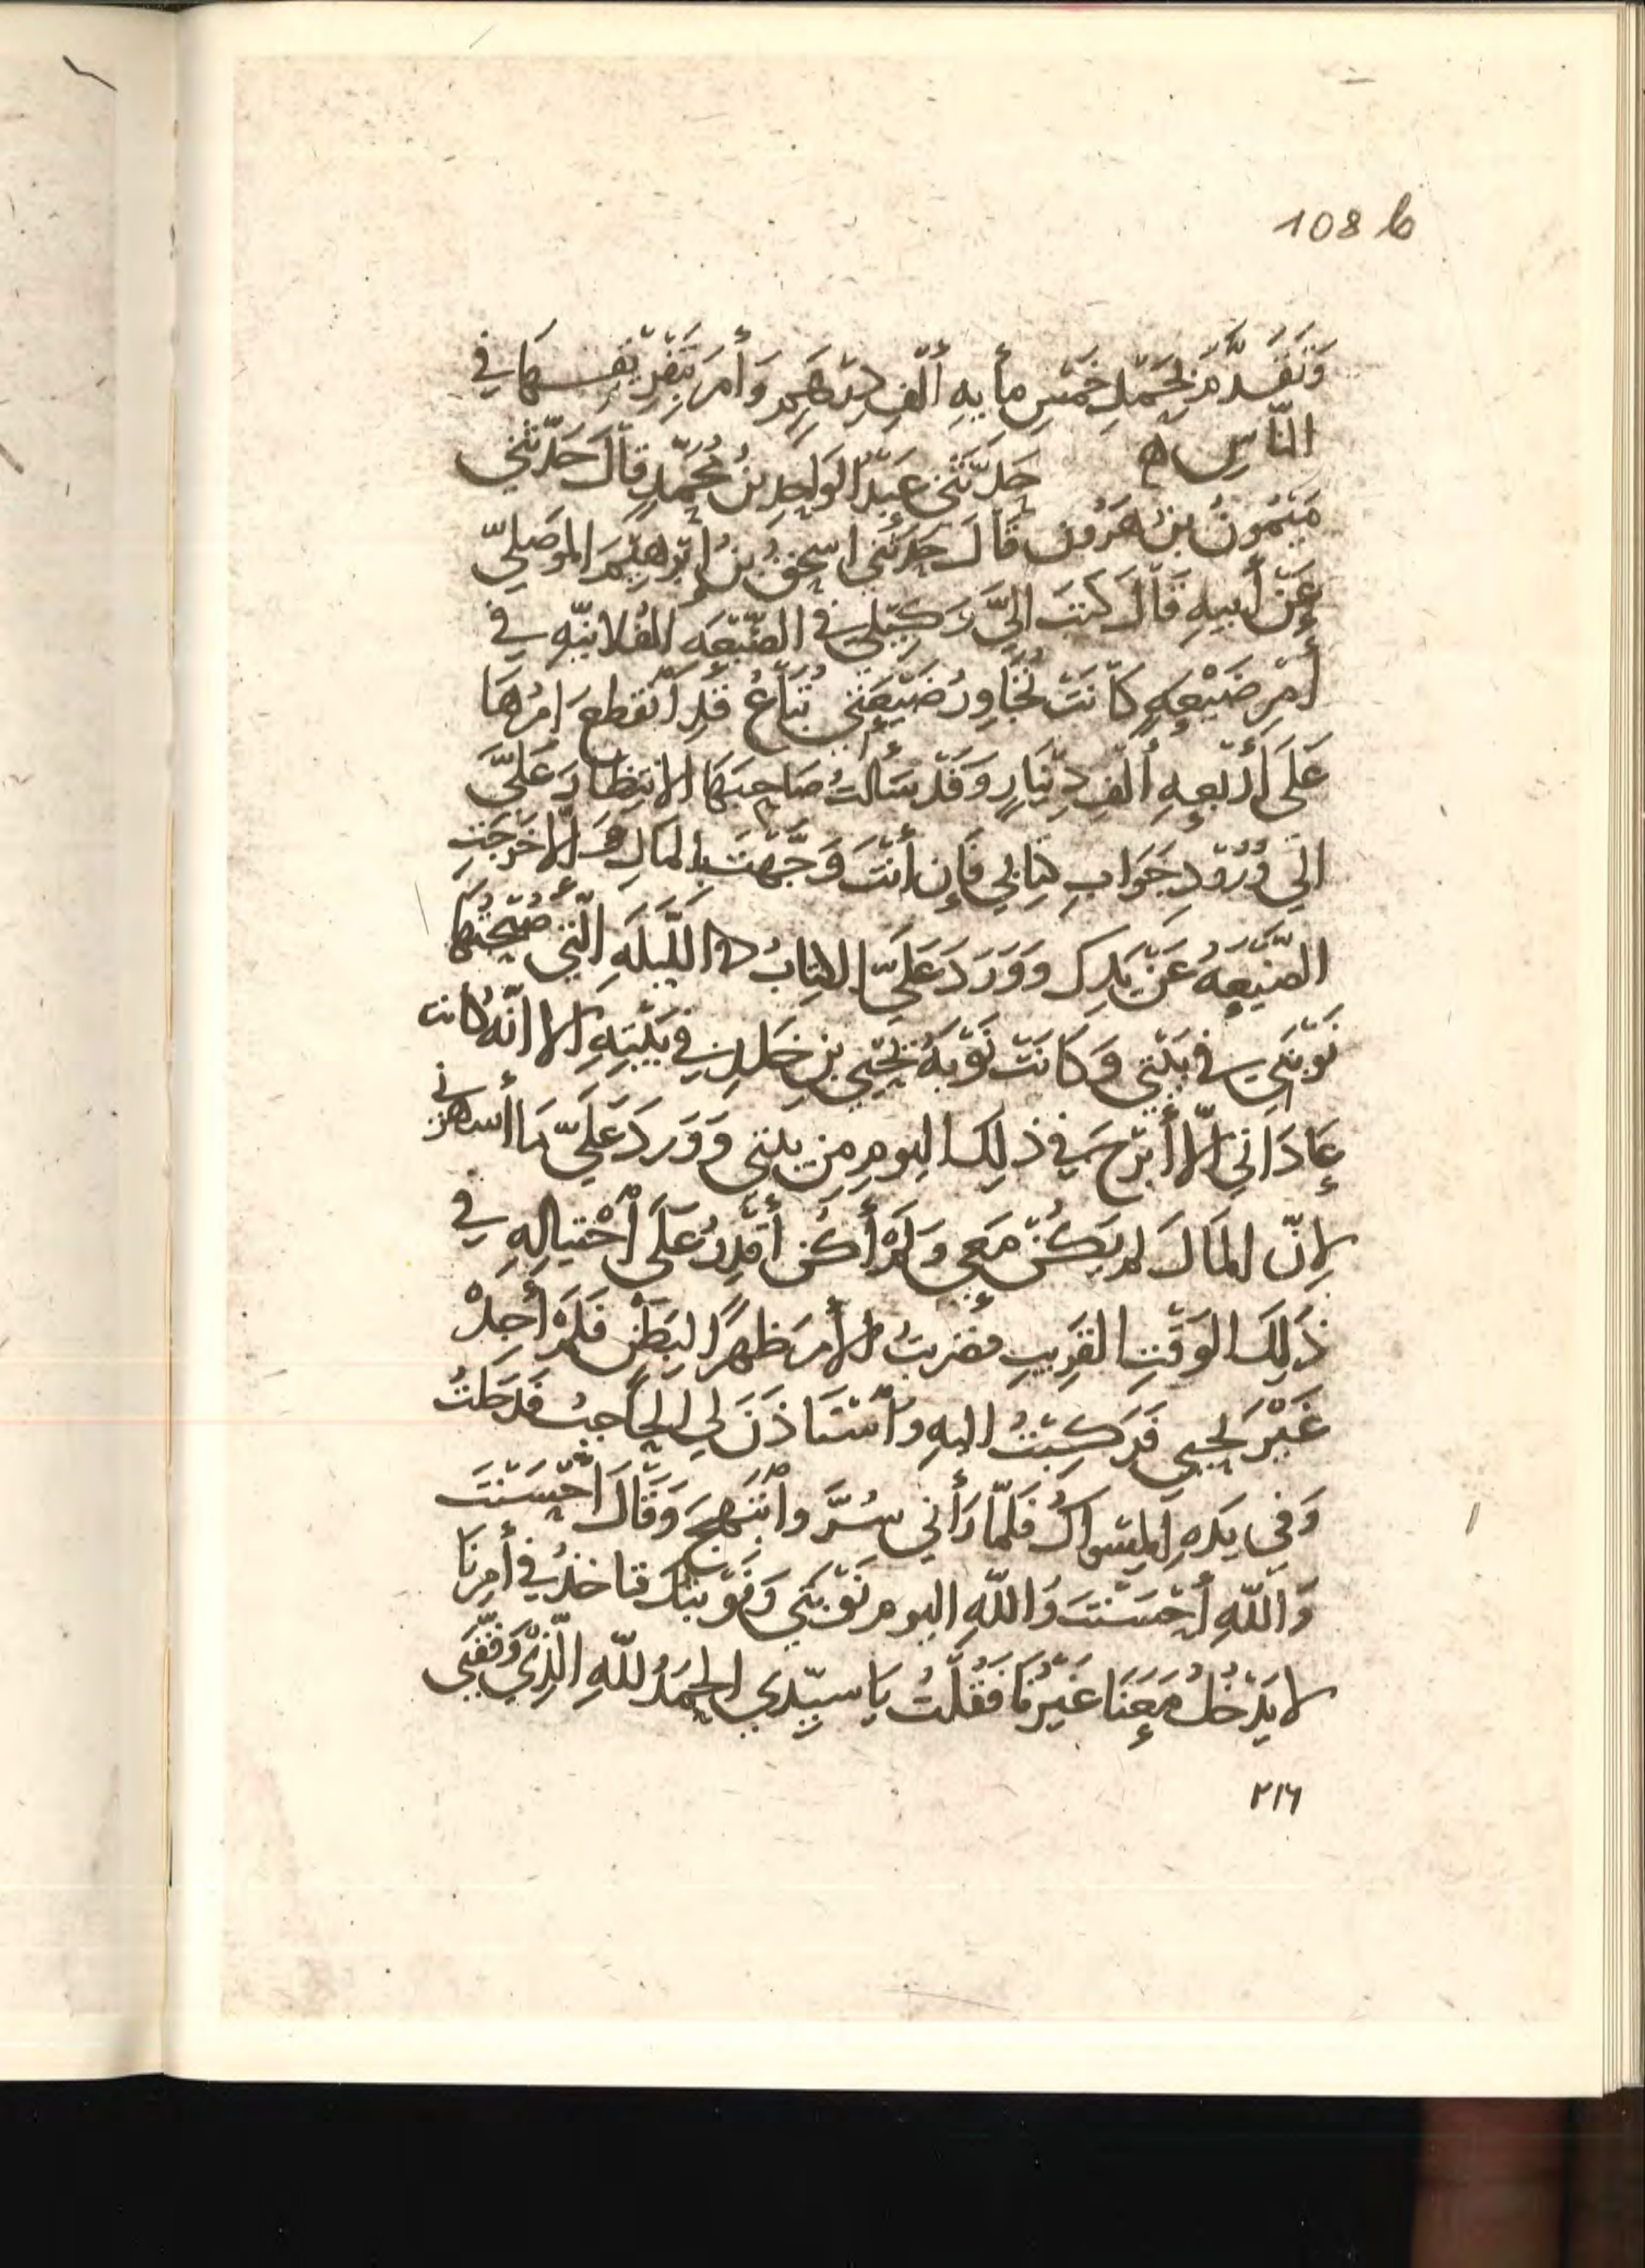 108 b
وَتَقَدَّمَ بِحَمْلِ خَمْسِ مأيهِ أَلْفِ دِرْهَمٍ وَأَمَرَ بِتَفْرِيقِهَا فِي
النَّاسِ ه حَدَّثَنِي عَبْدُ الوَاحِدِ بْنُ مُحَمَّدٍ قَالَ حَدَّثَنِي
مَيْمُونُ بنُ هَرُونَ قَالَ حَدَّثَنِي إسْحَقُ بْنُ إبْرهِيْمَ الموصَلِيّ
عَنْ أَبِيهِ قَالَ كَتَبَ إلَيَّ وَكِيْلِي فِي الضَّيْعَهِ الفُلانِيّهِ فِي
أَمْرِ ضَيْعِهٍ كَانَتْ تُجَاوِرُ ضَيْعَتِي تُبَاعُ قَدِ أنْقَطَعَ امْرُهَا
عَلَى أَرْبَعِهِ أَلْفِ دِيْنَارٍ وَقَدْ سَأَلتُ صَاحِبَهَا الانتِظَارَ عَلَيَّ
الَى وُرُوْدِ جَوَابِ كِتَابِي فَإِن أَنْتَ وَجَّهْتَ بِالمَالِ وَإلَّا خَرَجَتِ
الضّيْعَهُ عَنْ يَدِكَ وَوَرَدَ عَلَيَّ الكِتَابُ فِي اللَّيْلَهِ الَّتِي صُبْحَتُهَا
نَوْبَتِي فِي بَيْتِي وَكَانَتْ نَوْبَهُ يَحْيَى بنِ خَلِدٍ فِي بَيْتِهِ إلا انَّهُ كَانت
عَادَاتِي ألَّا أَبْرَحَ فِي ذَلِكَ اليومِ مِن بيتي وَوَرَدَ عَلَيَّ مَا أسهرني
لإنّ المَالَ لم يَكُنْ مَعِي وَلَمْ أَكُن أَقْدِرُ عَلَى أحْتِيَالِهِ فِي
ذَلِكَ الوَقْتِ القَرِيبِ فضربتُ الأمرَ ظهرًا لِبَطْنٍ فَلَمْ أَجِدْ
غَيْرَ يَحْيى فَرَكِبْتُ اليهِ وَأسْتَاذَنَ لِي الحَاجِبُ فَدَخَلْتُ
وَفِي يَدِهِ المِسْوَاكُ فَلَمّا رَأَنِي سُرَّ وأبْتَهجَ وَقَالَ أَحْسَنْتَ
وَاللهِ أَحْسَنْتَ وَاللهِ اليوم نَوْبَتِي وَنَوْبَتُكَ فنَاخُذُ فِي أَمْرِنَا
لا يَدْخُلُ مَعَنَا غَيْرُنَا فَقُلْتُ يَا سَيِّدِي الحَمْدُ للهِ الَّذِي وَفَّقَنِي
٢١٦